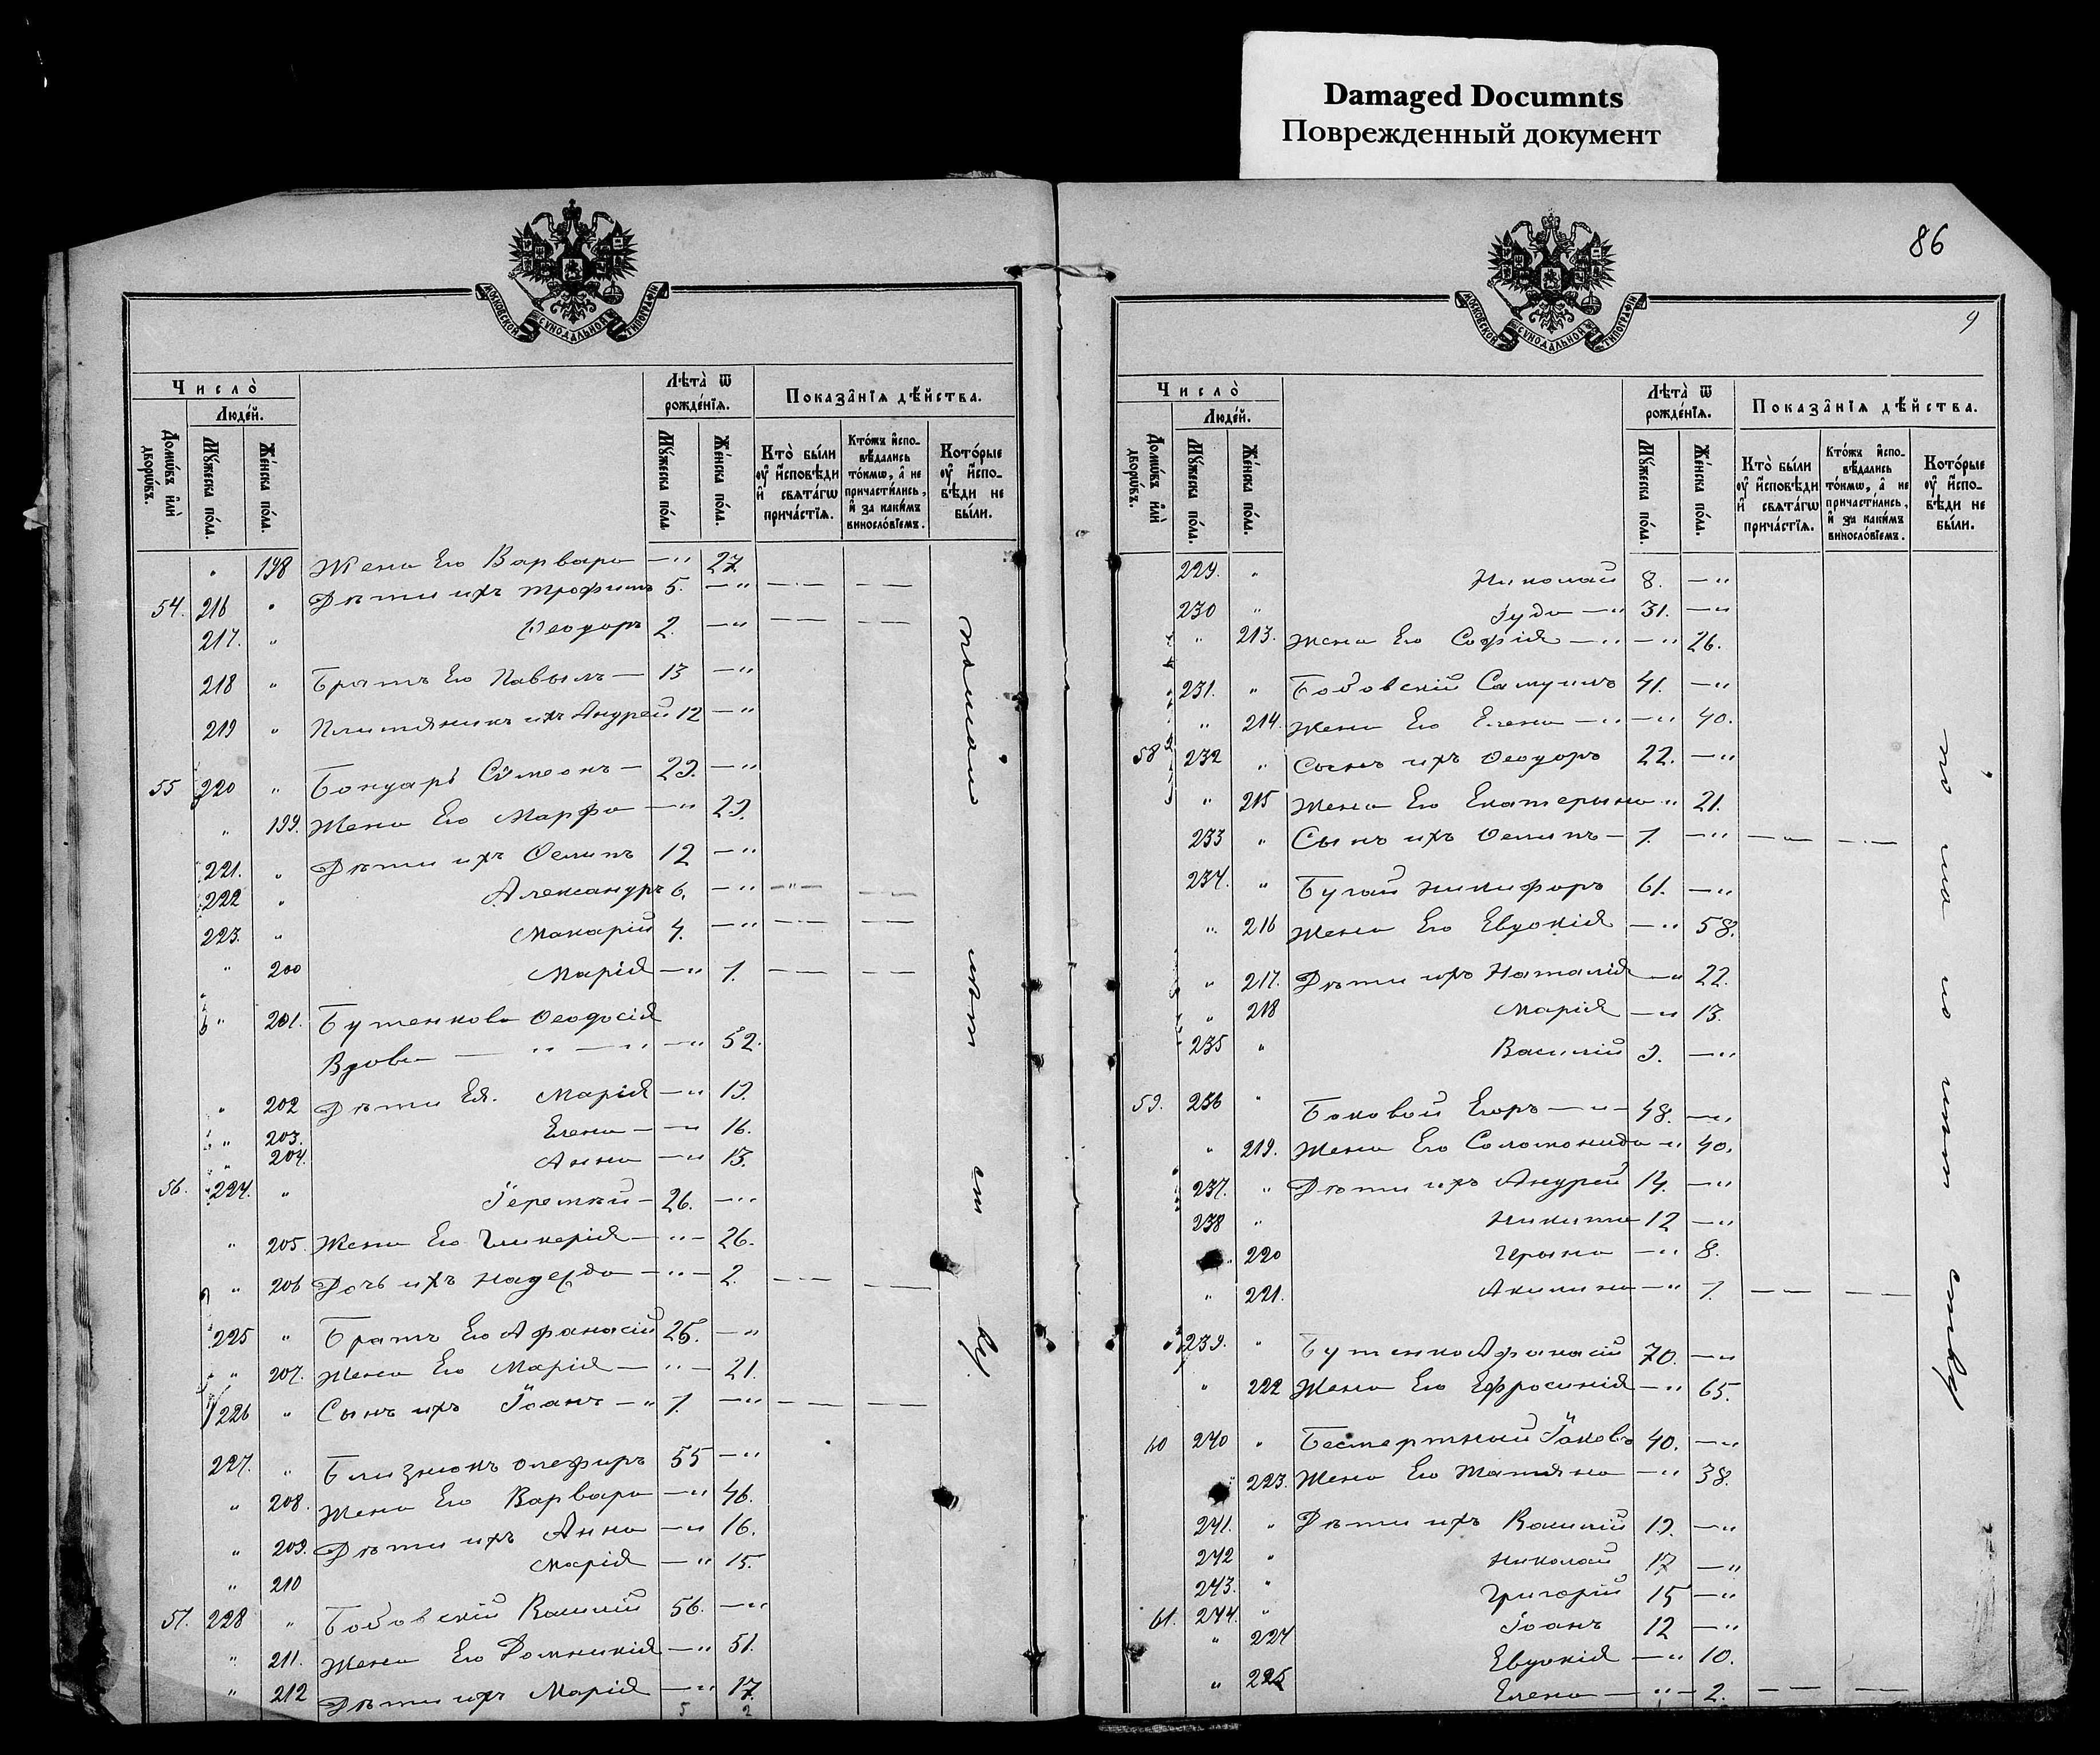 Damaged Documnts
Поврежденный документ
86
9
МОСКОВСКОЙ СѴНОДАЛЬНОЙ ТИПОГРАФІИ
Число̀
Люде́й.
Домѡ́въ и҆лѝ дворѡ́въ.
Мꙋ́жеска по́ла.
Же́нска по́ла.
Лѣта̀ ѿ рожде́нїѧ.
Мꙋ́жеска по́ла.
Же́нска по́ла.
Показа̑нїѧ дѣ́йства.
Кто̀ бы́ли ᲂу҆ и҆сповѣ́ди и҆ свѧта́гѡ прича́стїѧ.
Кто́жъ и҆спо-вѣ́дались то́кмѡ, а҆ не причасти́лись, и҆ за каки́мъ виносло́вїемъ.
Кото́рые ᲂу҆ и҆спо-вѣ́ди не бы́ли.
" 198 Жена Его Варвара — " 27.
54. 216 " Дѣти ихъ Трофимъ 5. — "
217. " Ѳеодоръ 2. — "
218 " Братъ Его Павылъ — 13 — "
219 " Племяникъ ихъ Андрей 12 — "
55 220 " Бондарь Сѵмеонъ — 29. — "
" 199. Жена Его Марфа — " 29.
221. " Дѣти ихъ Осипъ 12 — "
222 " Александръ 6. — "
223. " Макарій 4. — "
" 200 Марія — " 1.
" 201. Бутенкова Ѳеодосія
Вдова — " — " — " 52.
" 202 Дѣти Ея. Марія — " 19.
" 203. Елена — " 16.
" 204. Анна — " 13.
56. 224. " Іеремій — 26. — "
" 205. Жена Его Гликерія — " — 26.
" 206 Дочь ихъ Надежда — " — 2.
225 " Братъ Его Афанасій 25. — "
" 207. Жена Его Марія — " — 21.
226 " Сынъ ихъ Іоанъ — " 1. — "
227. " Близнюкъ Олефиръ 55 — "
" 208. Жена Его Варвара — " 46.
" 209. Дѣти ихъ Анна — " 16.
" 210 Марія — " 15.
57. 228 " Бобовскій Василій 56. — "
" 211. Жена Его Домникія — " 51.
" 212 Дѣти ихъ Марія — " 17.
5 2
Число̀
Люде́й.
Домѡ́въ и҆лѝ дворѡ́въ.
Мꙋ́жеска по́ла.
Же́нска по́ла.
Лѣта̀ ѿ рожде́нїѧ.
Мꙋ́жеска по́ла.
Же́нска по́ла.
Показа̑нїѧ дѣ́йства.
Кто̀ бы́ли ᲂу҆ и҆сповѣ́ди и҆ свѧта́гѡ прича́стїѧ.
Кто́жъ и҆спо-вѣ́дались то́кмѡ, а҆ не причасти́лись, и҆ за каки́мъ виносло́вїемъ.
Кото́рые ᲂу҆ и҆спо-вѣ́ди не бы́ли.
МОСКОВСКОЙ СѴНОДАЛЬНОЙ ТИПОГРАФІИ
229. " Николай 8. — "
230 " Іуда — " 31. — "
" 213. Жена Его Софія — " — " 26.
231. " Бобовскій Самуилъ 41. — "
" 214. Жена Его Елена — " — " 40.
58 232 " Сынъ ихъ Ѳеодоръ 22. — "
" 215 Жена Его Екатерына " 21.
233 " Сынъ ихъ Осипъ — 1. — "
234. " Бугай Никифоръ 61. — "
" 216 Жена Его Евдокія — " 58.
" 217. Дѣти ихъ Наталія — " 22.
" 218 Марія — " 13.
235 " Василій 9. — "
59. 236 " Боковой Егоръ — " — 48. — "
" 219. Жена Его Соломонида " 40.
237. " Дѣти ихъ Андрей 14. — "
238 " Никита 12 — "
" 220 Ирына — " 8.
" 221. Акилина — " 1.
239. " Бутенко Афанасій 70. — "
" 222 Жена Его Ефросинія — " 65.
60 240 " Безсмертный Іаковъ 40. — "
" 223. Жена Его Татіяна — " 38.
241. " Дѣти ихъ Василій 19. — "
242 " Николай 17 — "
243. " Григорій 15 — "
61. 244. " Іоанъ 12 — "
" 224 Евдокія — " 10.
" 225 Елена — " — 2.